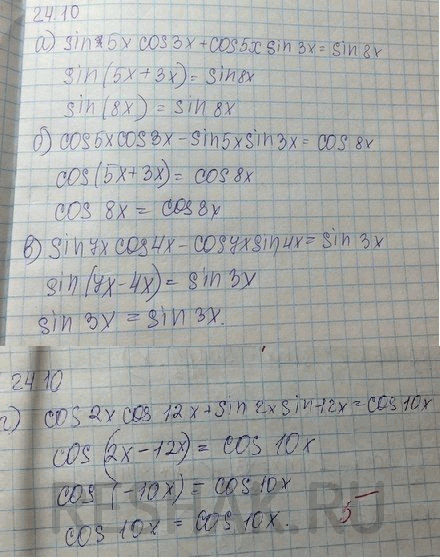 24.10
а) sin 5x cos 3x + cos 5x sin 3x = sin 8x
sin (5x + 3x) = sin 8x
sin (8x) = sin 8x
б) cos 5x cos 3x - sin 5x sin 3x = cos 8x
cos (5x + 3x) = cos 8x
cos 8x = cos 8x
в) sin 7x cos 4x - cos 7x sin 4x = sin 3x
sin (7x - 4x) = sin 3x
sin 3x = sin 3x.
24.10
г) cos 2x cos 12x + sin 2x sin 12x = cos 10x
cos (2x - 12x) = cos 10x
cos (-10x) = cos 10x
cos 10x = cos 10x.
5
RESHAK.RU